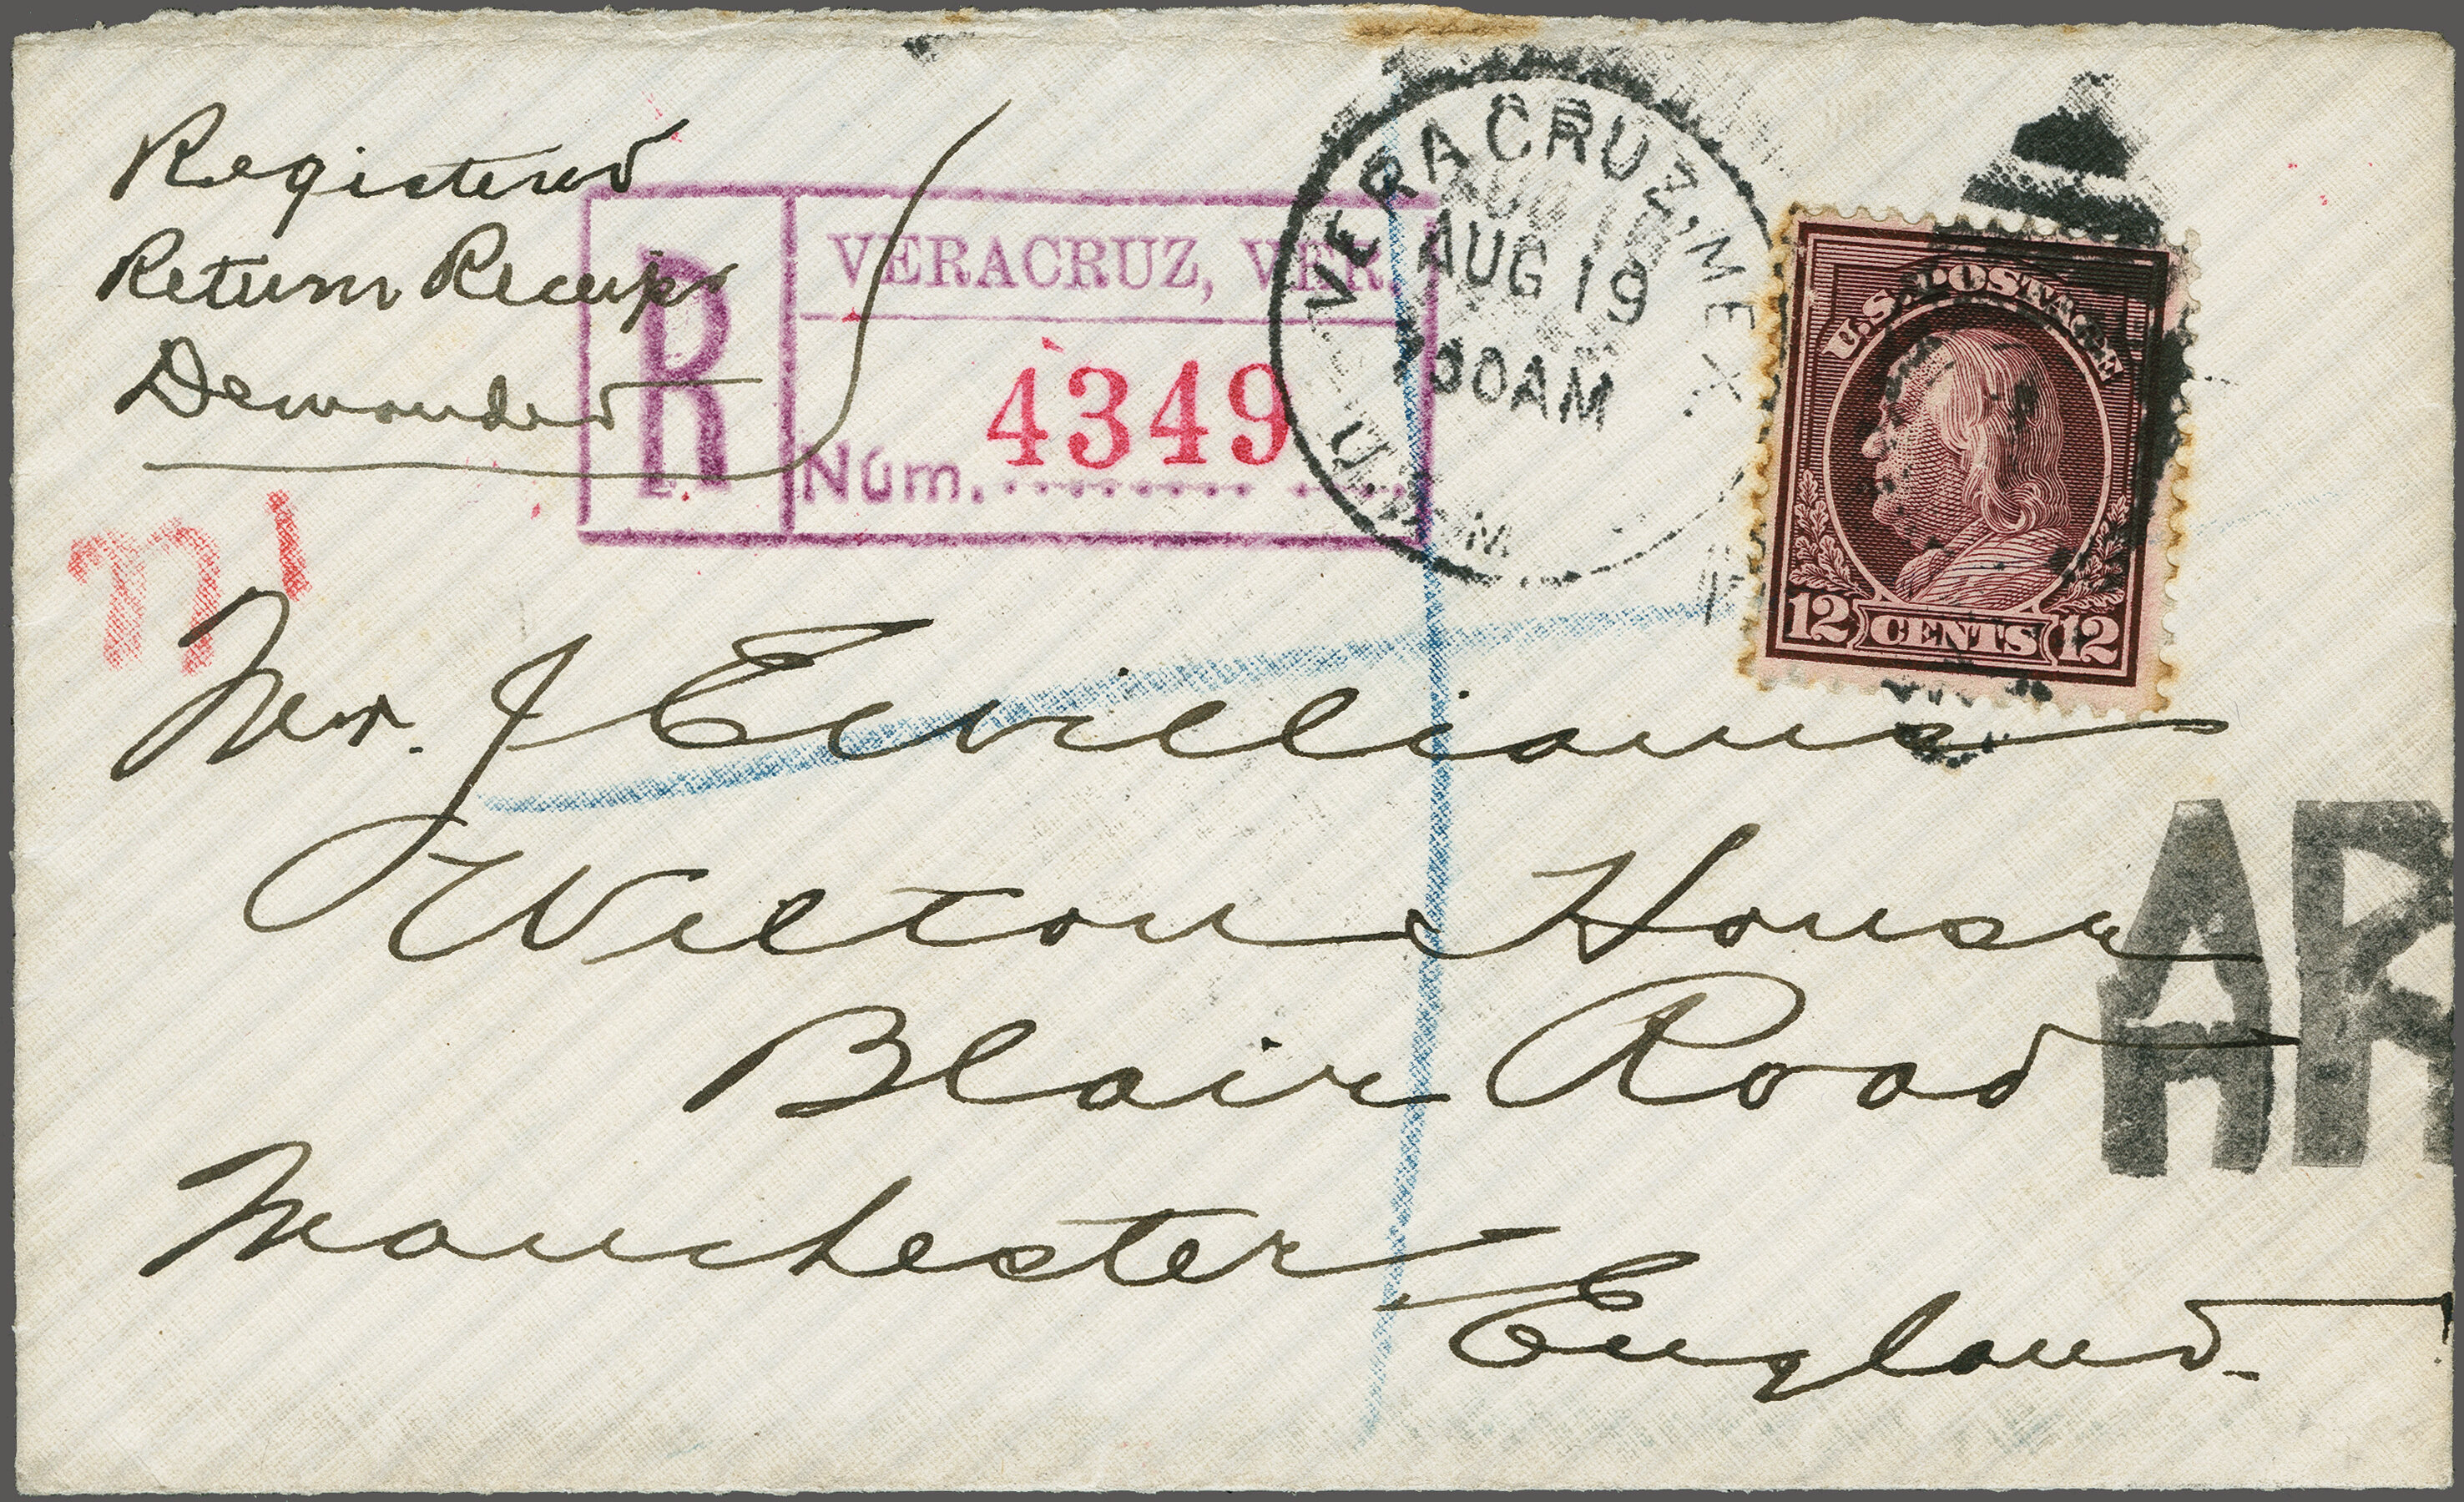 Registered
Return Receipt
Demanded
R
VERACRUZ, VER.
Núm. 4349
VERACRUZ, MEX.
AUG 19
30AM
U.S. M
U.S. POSTAGE
12 CENTS 12
Mr. J E Williams
Wilton House
Blair Road
Manchester
England.
AR